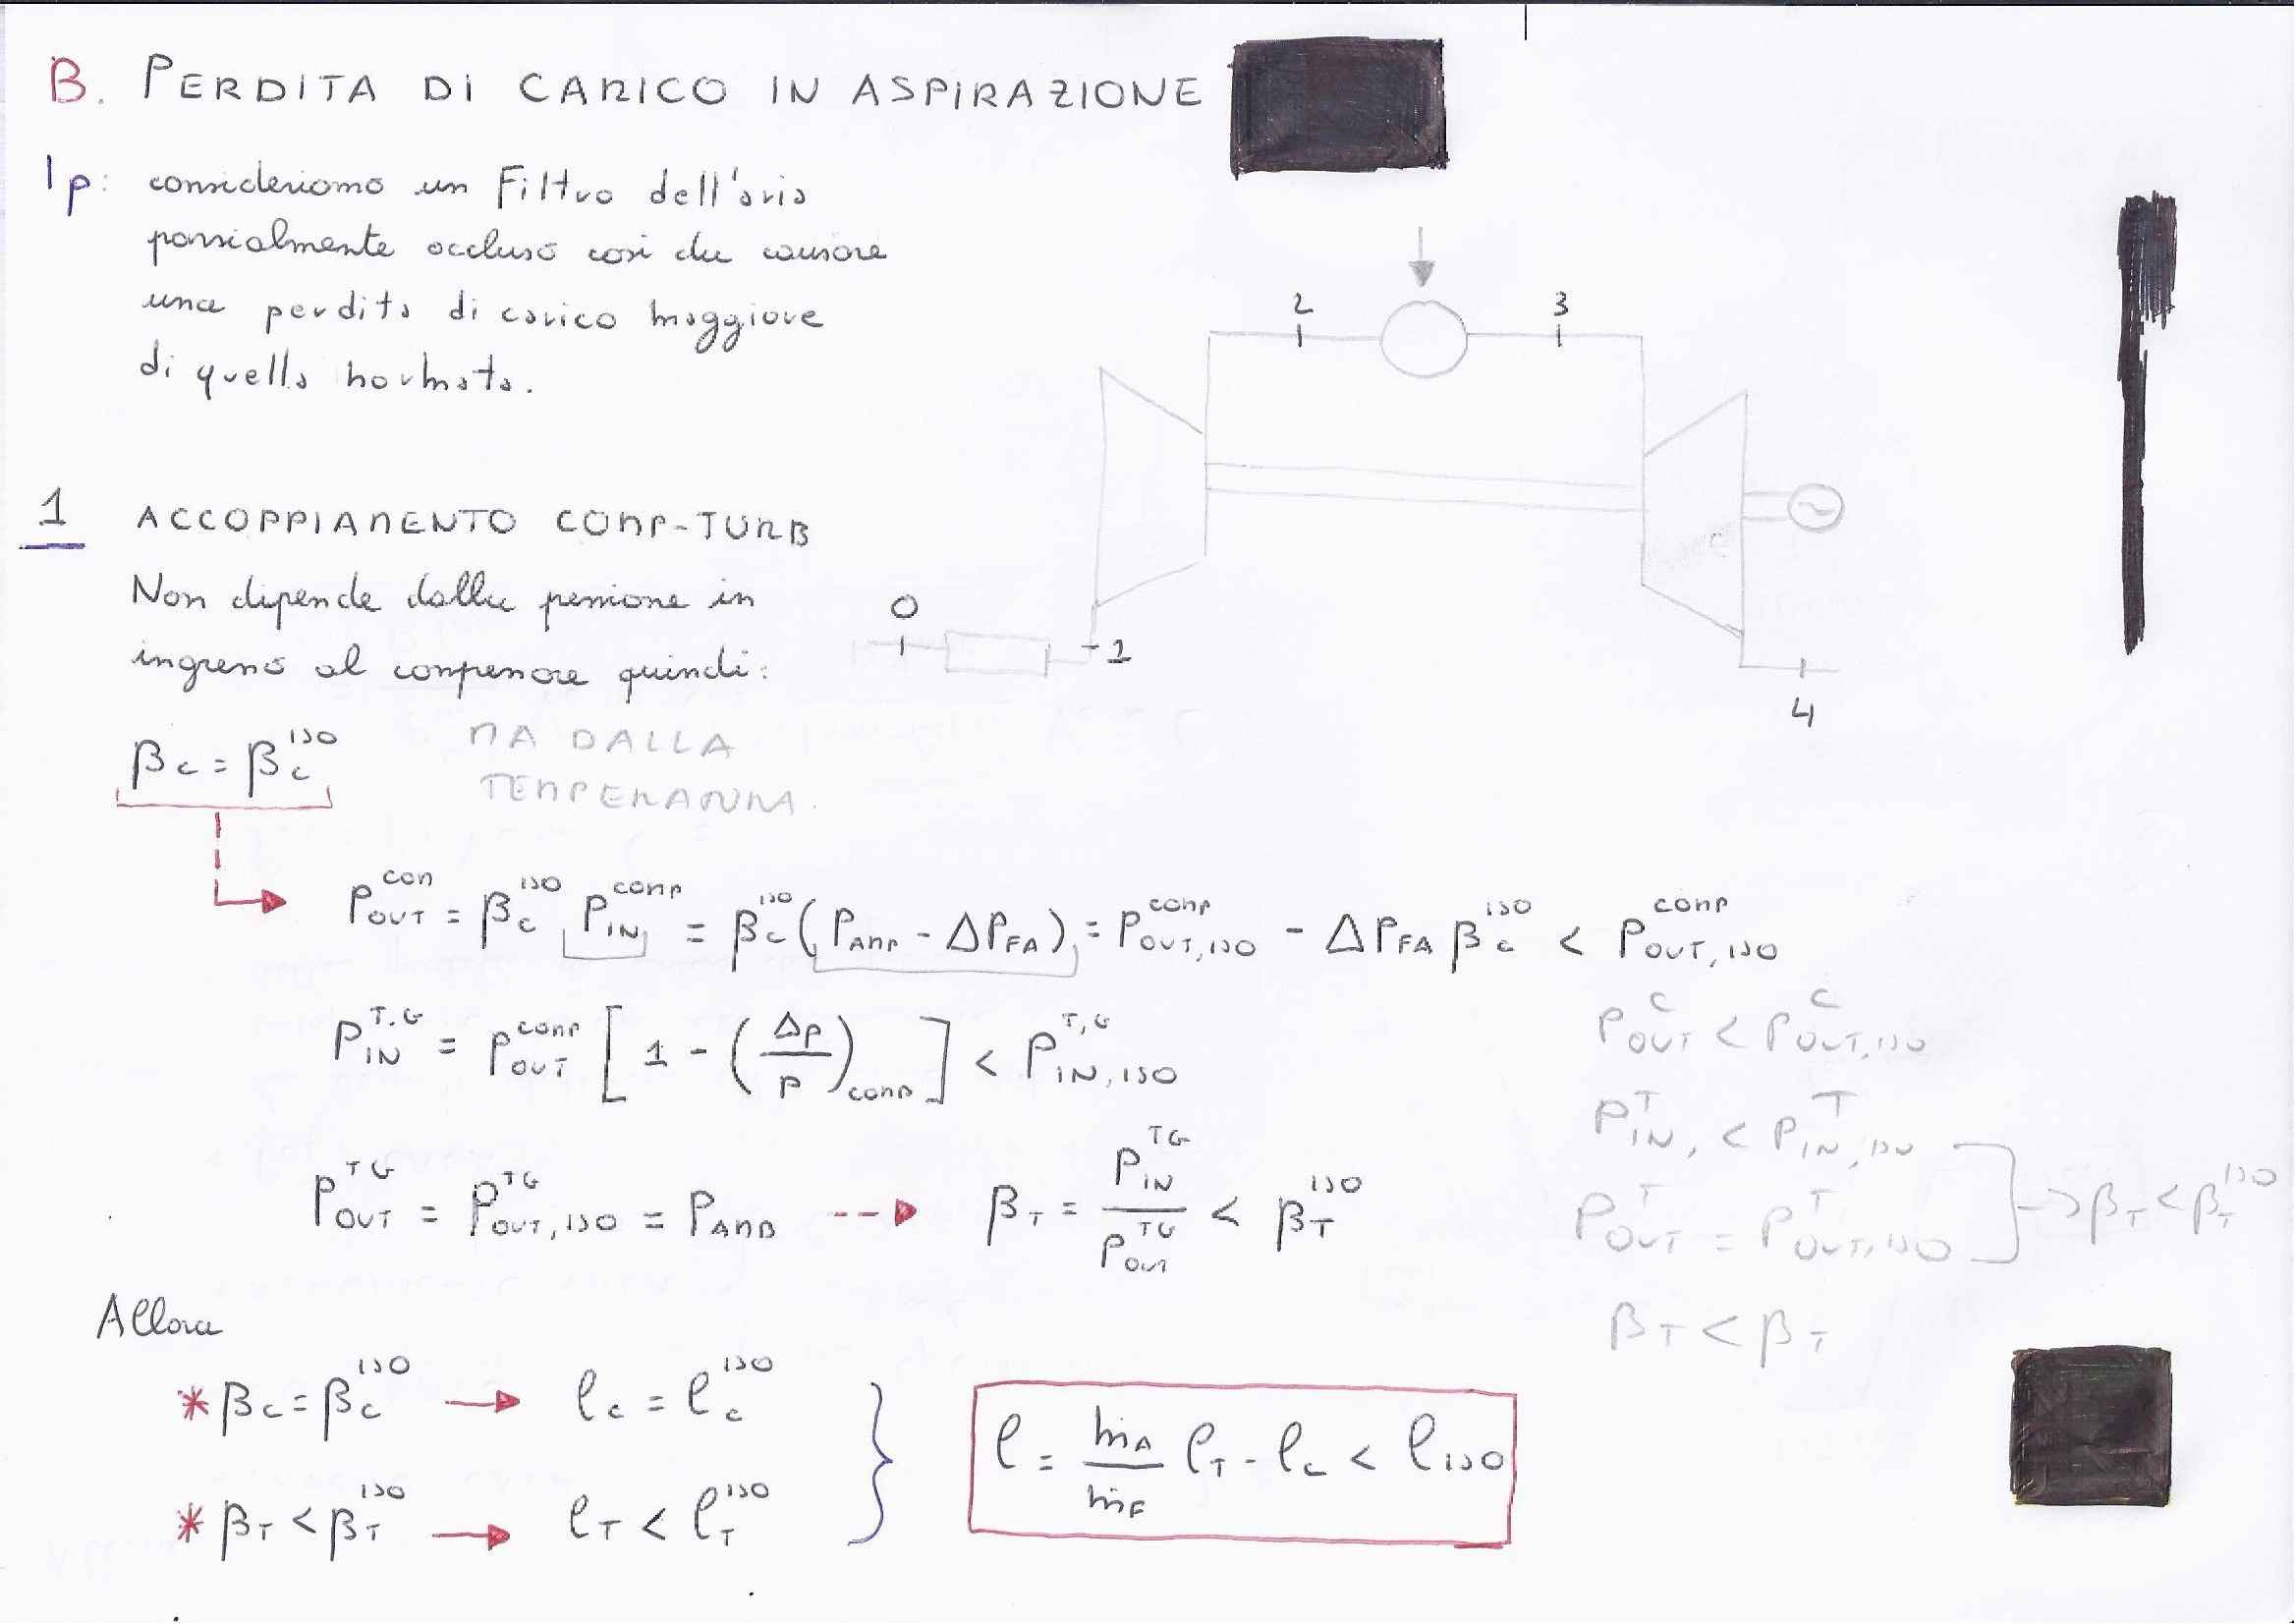 B. PERDITA DI CARICO IN ASPIRAZIONE
Ip: consideriamo un Filtro dell'aria
parzialmente occluso così che causare
una perdita di carico maggiore
di quella normata.
2
3
1 ACCOPPIAMENTO COMP-TURB
Non dipende dalla pressione in
ingresso al compressore quindi:
0
1
4
βc = βc^ISO
MA DALLA
TEMPERATURA.
P_OUT^COM = βc^ISO P_IN^COMP = βc^ISO (P_AMP - ΔP_FA) = P_OUT,ISO^COMP - ΔP_FA βc^ISO < P_OUT,ISO^COMP
P_IN^T.G = P_OUT^COMP [1 - (Δp/p)_COMP] < P_IN,ISO^T,G
P_OUT^C < P_OUT,ISO^C
P_IN,^T < P_IN,ISO^T
P_OUT^TG = P_OUT,ISO^TG = P_AMB --> β_T = P_IN^TG / P_OUT^TG < β_T^ISO
P_OUT^T = P_OUT,ISO^T
→ β_T < β_T^ISO
β_T < β_T
Allora
* βc = βc^ISO → lc = lc^ISO
* β_T < β_T^ISO → l_T < l_T^ISO
l = ṁ_A/ṁ_F l_T - l_c < l_ISO